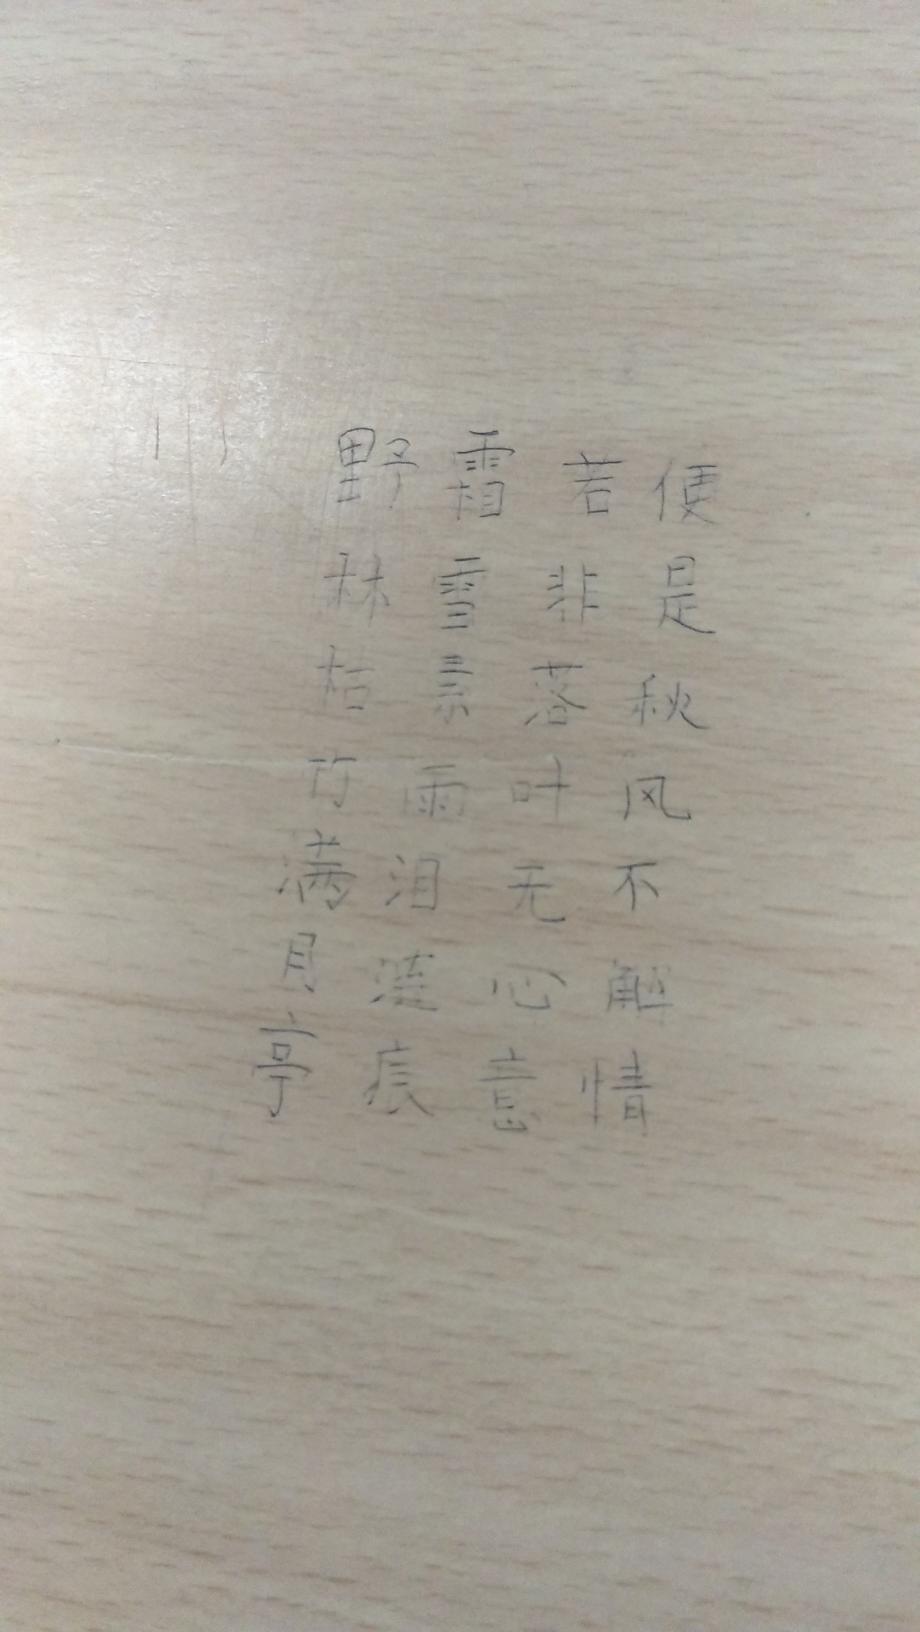 野林枯竹满月亭
霜雪素雨泪涟痕
若非落叶无心意
便是秋风不解情